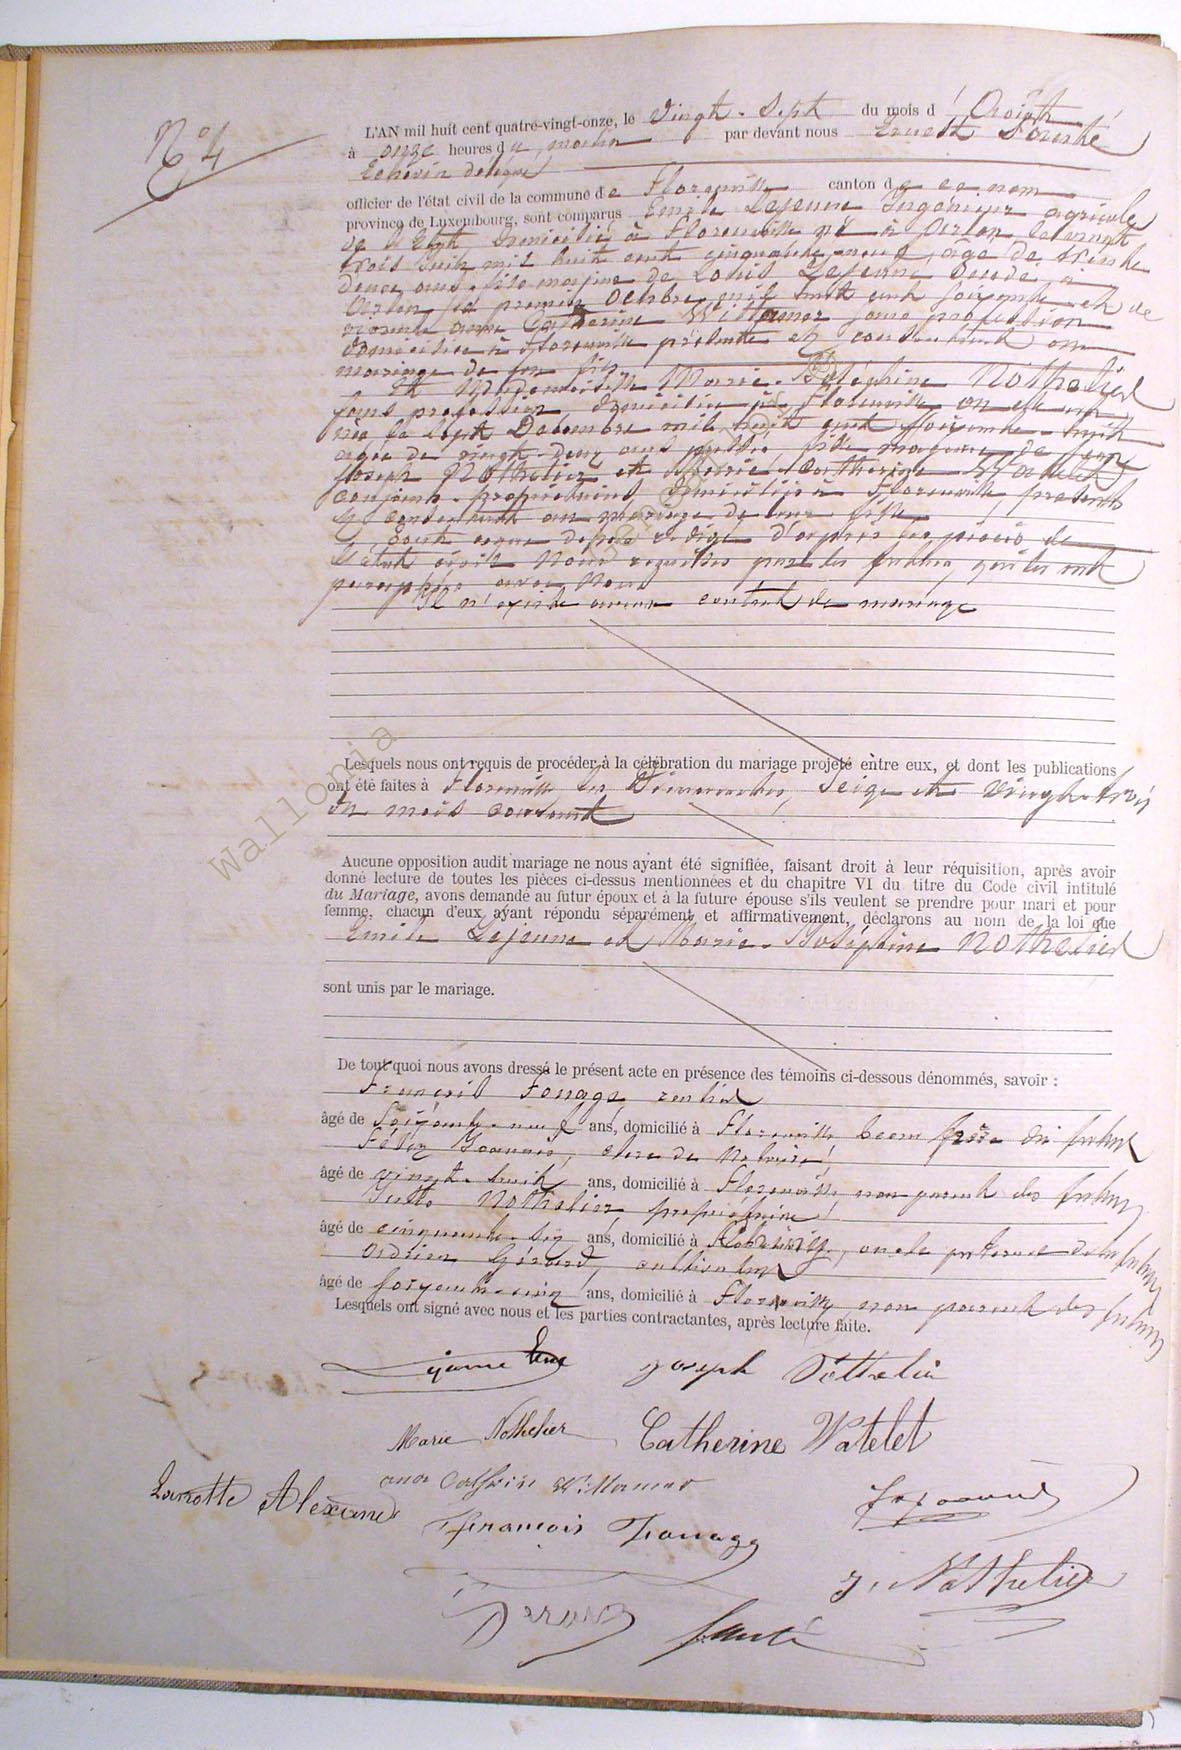 N° 4
L'AN mil huit cent quatre-vingt-onze, le Vingt-Sept du mois d' Août
à onze heures du matin par devant nous Ernest Fauté
Echevin délégué
officier de l'état civil de la commune de Florenville canton de ce nom
province de Luxembourg, sont comparus Emile Lejeune Ingénieur agricole
de l'Etat domicilié à Florenville né à Arlon le vingt
trois Juin mil huit cent cinquante-neuf, âgé de trente
deux ans, fils majeur de Louis Lejeune décédé à
Arlon le premier Octobre mil huit cent soixante et de
présente anne Catherine sans profession
domiciliée à Florenville présente et consentant au
mariage de son fils.
Et Mademoiselle Marie-Joséphine Nothelier
sans profession, domiciliée à Florenville où elle est
née le sept Décembre mil huit cent soixante-huit
âgée de vingt-deux ans, fille majeure de
Joseph Nothelier et Marie-Catherine Watelet
conjoints propriétaires domiciliés à Florenville présents
et consentant au mariage de leur fille,
Le tout comme dessus rédigé d'après les pièces de
l'état civil Nous requises par les futurs, qui les ont
paraphées avec Nous
Il n'existe aucun contrat de mariage
Lesquels nous ont requis de procéder à la célébration du mariage projeté entre eux, et dont les publications
ont été faites à Florenville les Dimanches, Seize et Vingt-trois
du mois courant
Aucune opposition audit mariage ne nous ayant été signifiée, faisant droit à leur réquisition, après avoir
donné lecture de toutes les pièces ci-dessus mentionnées et du chapitre VI du titre du Code civil intitulé
du Mariage, avons demandé au futur époux et à la future épouse s'ils veulent se prendre pour mari et pour
femme, chacun d'eux ayant répondu séparément et affirmativement, déclarons au nom de la loi que
Emile Lejeune et Marie-Joséphine Nothelier
sont unis par le mariage.
De tout quoi nous avons dressé le présent acte en présence des témoins ci-dessous dénommés, savoir :
François Fouage, rentier
âgé de soixante-neuf ans, domicilié à Florenville beau frère du futur
Félix, clerc de Notaire,
âgé de vingt-huit ans, domicilié à Florenville non parent des futurs
Nothelier propriétaire
âgé de cinquante-six ans, domicilié à oncle paternel de la future
Adrien Gérard, cultivateur
âgé de soixante-cinq ans, domicilié à Florenville non parent des futurs
Lesquels ont signé avec nous et les parties contractantes, après lecture faite.
Joseph Nothelier
Marie Nothelier Catherine Watelet
Lamotte Alexandre
François Fouage
J. Nothelier
Fauté
Wallonia